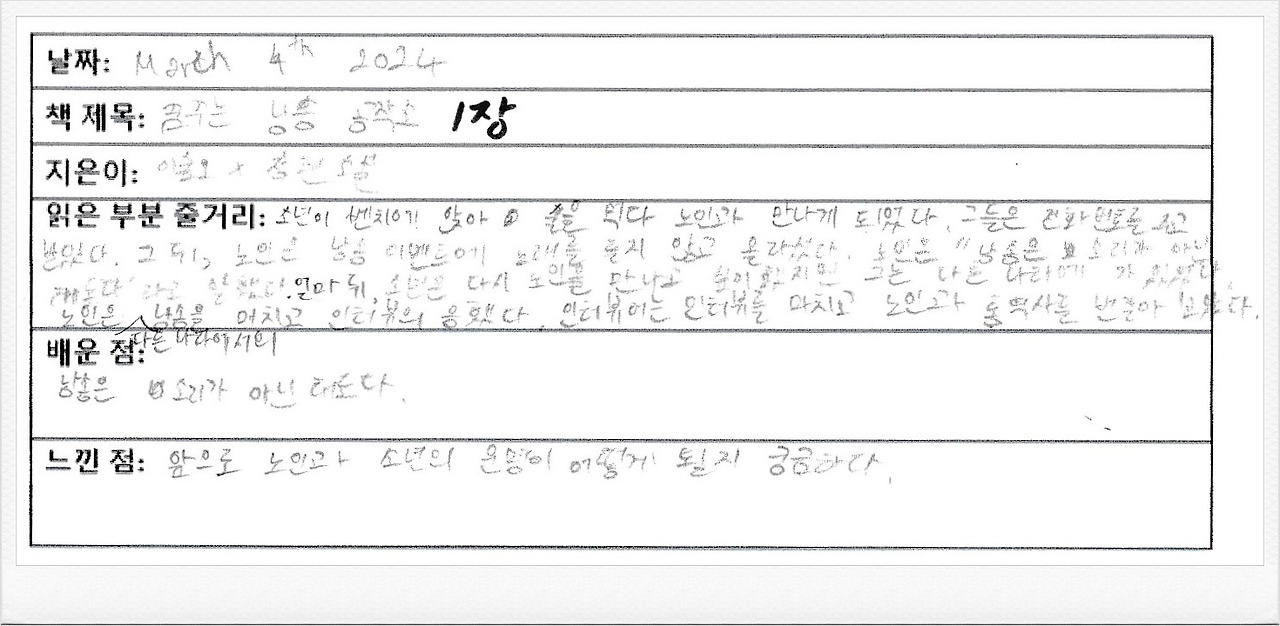 날짜: March 4th 2024
책 제목: 꿈꾸는 낭송 공작소 1장
지은이: 이숲오 장편소설
읽은 부분 줄거리: 소년이 벤치에 앉아 을 먹다 노인과 만나게 되었다. 그들은 전화번호를 주고
받았다. 그 뒤, 노인은 낭송 이벤트에 노래를 듣지 않고 올라섰다. 노인은 "낭송은 소리가 아닌
태도다" 라고 말했다. 얼마 뒤, 소년은 다시 노인을 만나고 싶어했지만 그는 다른 나라에 가 있었다.
노인은 낭송을 마치고 인터뷰의 응했다. 인터뷰어는 인터뷰를 마치고 노인과 통역사를 번갈아 보았다.
다른 나라에서의
배운 점:
낭송은 소리가 아닌 태도다.
느낀 점: 앞으로 노인과 소년의 운명이 어떻게 될지 궁금하다.